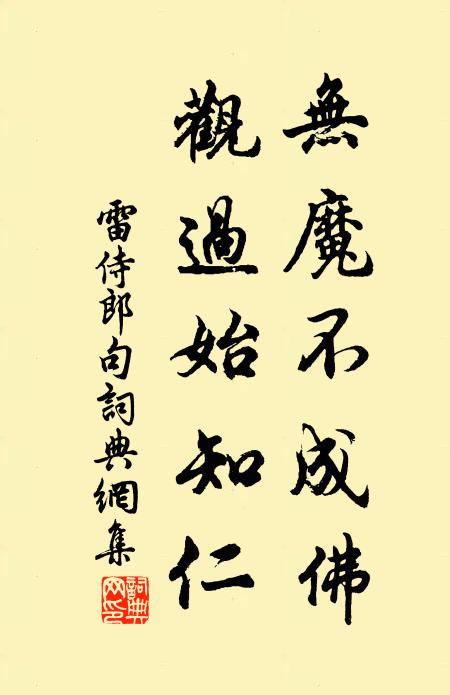 無魔不成佛
觀過始知仁
雷侍郎句詞典網集
詞典网印